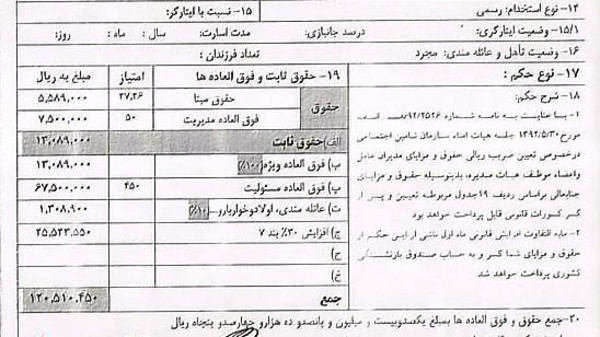 ۱۴- نوع استخدام: رسمی
۱۵- نسبت با ایثارگر:
۱۵/۱- وضعیت ایثارگری:
درصد جانبازی:
مدت اسارت:
سال:
ماه:
روز:
۱۶- وضعیت تأهل و عائله مندی: مجرد
تعداد فرزندان:
۱۷- نوع حکم:
۱۸- شرح حکم:
۱- با عنایت به نامه شماره
مورخ ۱۳۹۲/۵/۳۰ جلسه هیات امناء سازمان تامین اجتماعی
درخصوص تعیین ضریب ریالی حقوق و مزایای مدیران عامل
واعضاء موظف هیات مدیره، بدینوسیله حقوق و مزایای
جنابعالی براساس ردیف ۱۹ جدول مربوطه تعیین و پس از
کسر کسورات قانونی قابل پرداخت خواهد بود
۲- مابه التفاوت افزایش قانونی ماه اول ناشی از این حکم از
حقوق و مزایای شما کسر و به حساب صندوق بازنشستگی
کشوری پرداخت خواهد شد
۱۹- حقوق ثابت و فوق العاده ها
امتیاز
مبلغ به ریال
حقوق
حقوق مبنا
۳۷,۲۶
۵,۵۸۹,۰۰۰
فوق العاده مدیریت
۵۰
۷,۵۰۰,۰۰۰
الف) حقوق ثابت
۱۳,۰۸۹,۰۰۰
ب) فوق العاده ویژه (۱۰۰٪)
۱۳,۰۸۹,۰۰۰
پ) فوق العاده مسئولیت
۴۵۰
۶۷,۵۰۰,۰۰۰
ت) عائله مندی، اولاد و خواربار و... (۱۰٪)
۱,۳۰۸,۹۰۰
ج) افزایش ۳۰٪ بند ۷
۲۵,۵۲۳,۵۵۰
ح)
خ)
جمع
۱۲۰,۵۱۰,۴۵۰
۲۰- جمع حقوق و فوق العاده ها بمبلغ یکصدوبیست و میلیون و پانصدو ده هزارو چهارصدو پنجاه ریال